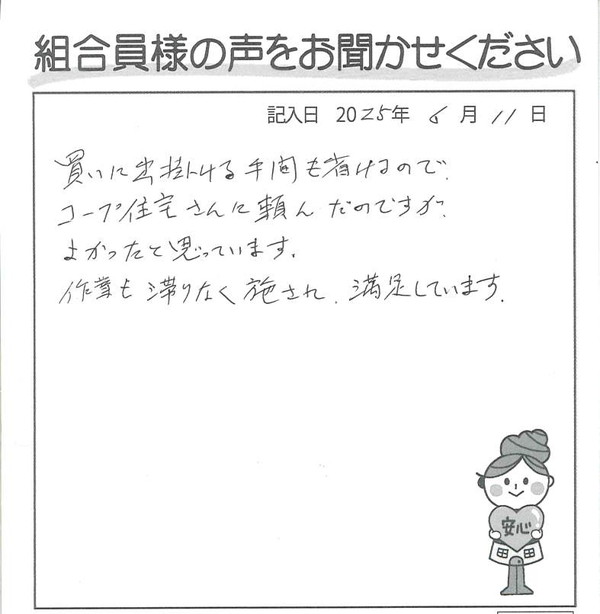 組合員様の声をお聞かせください
記入日 2025年 6月 11日
買いに出掛ける手間も省けるので、
コープ住宅さんに頼んだのですが、
よかったと思っています。
作業も滞りなく施され、満足しています。
安心